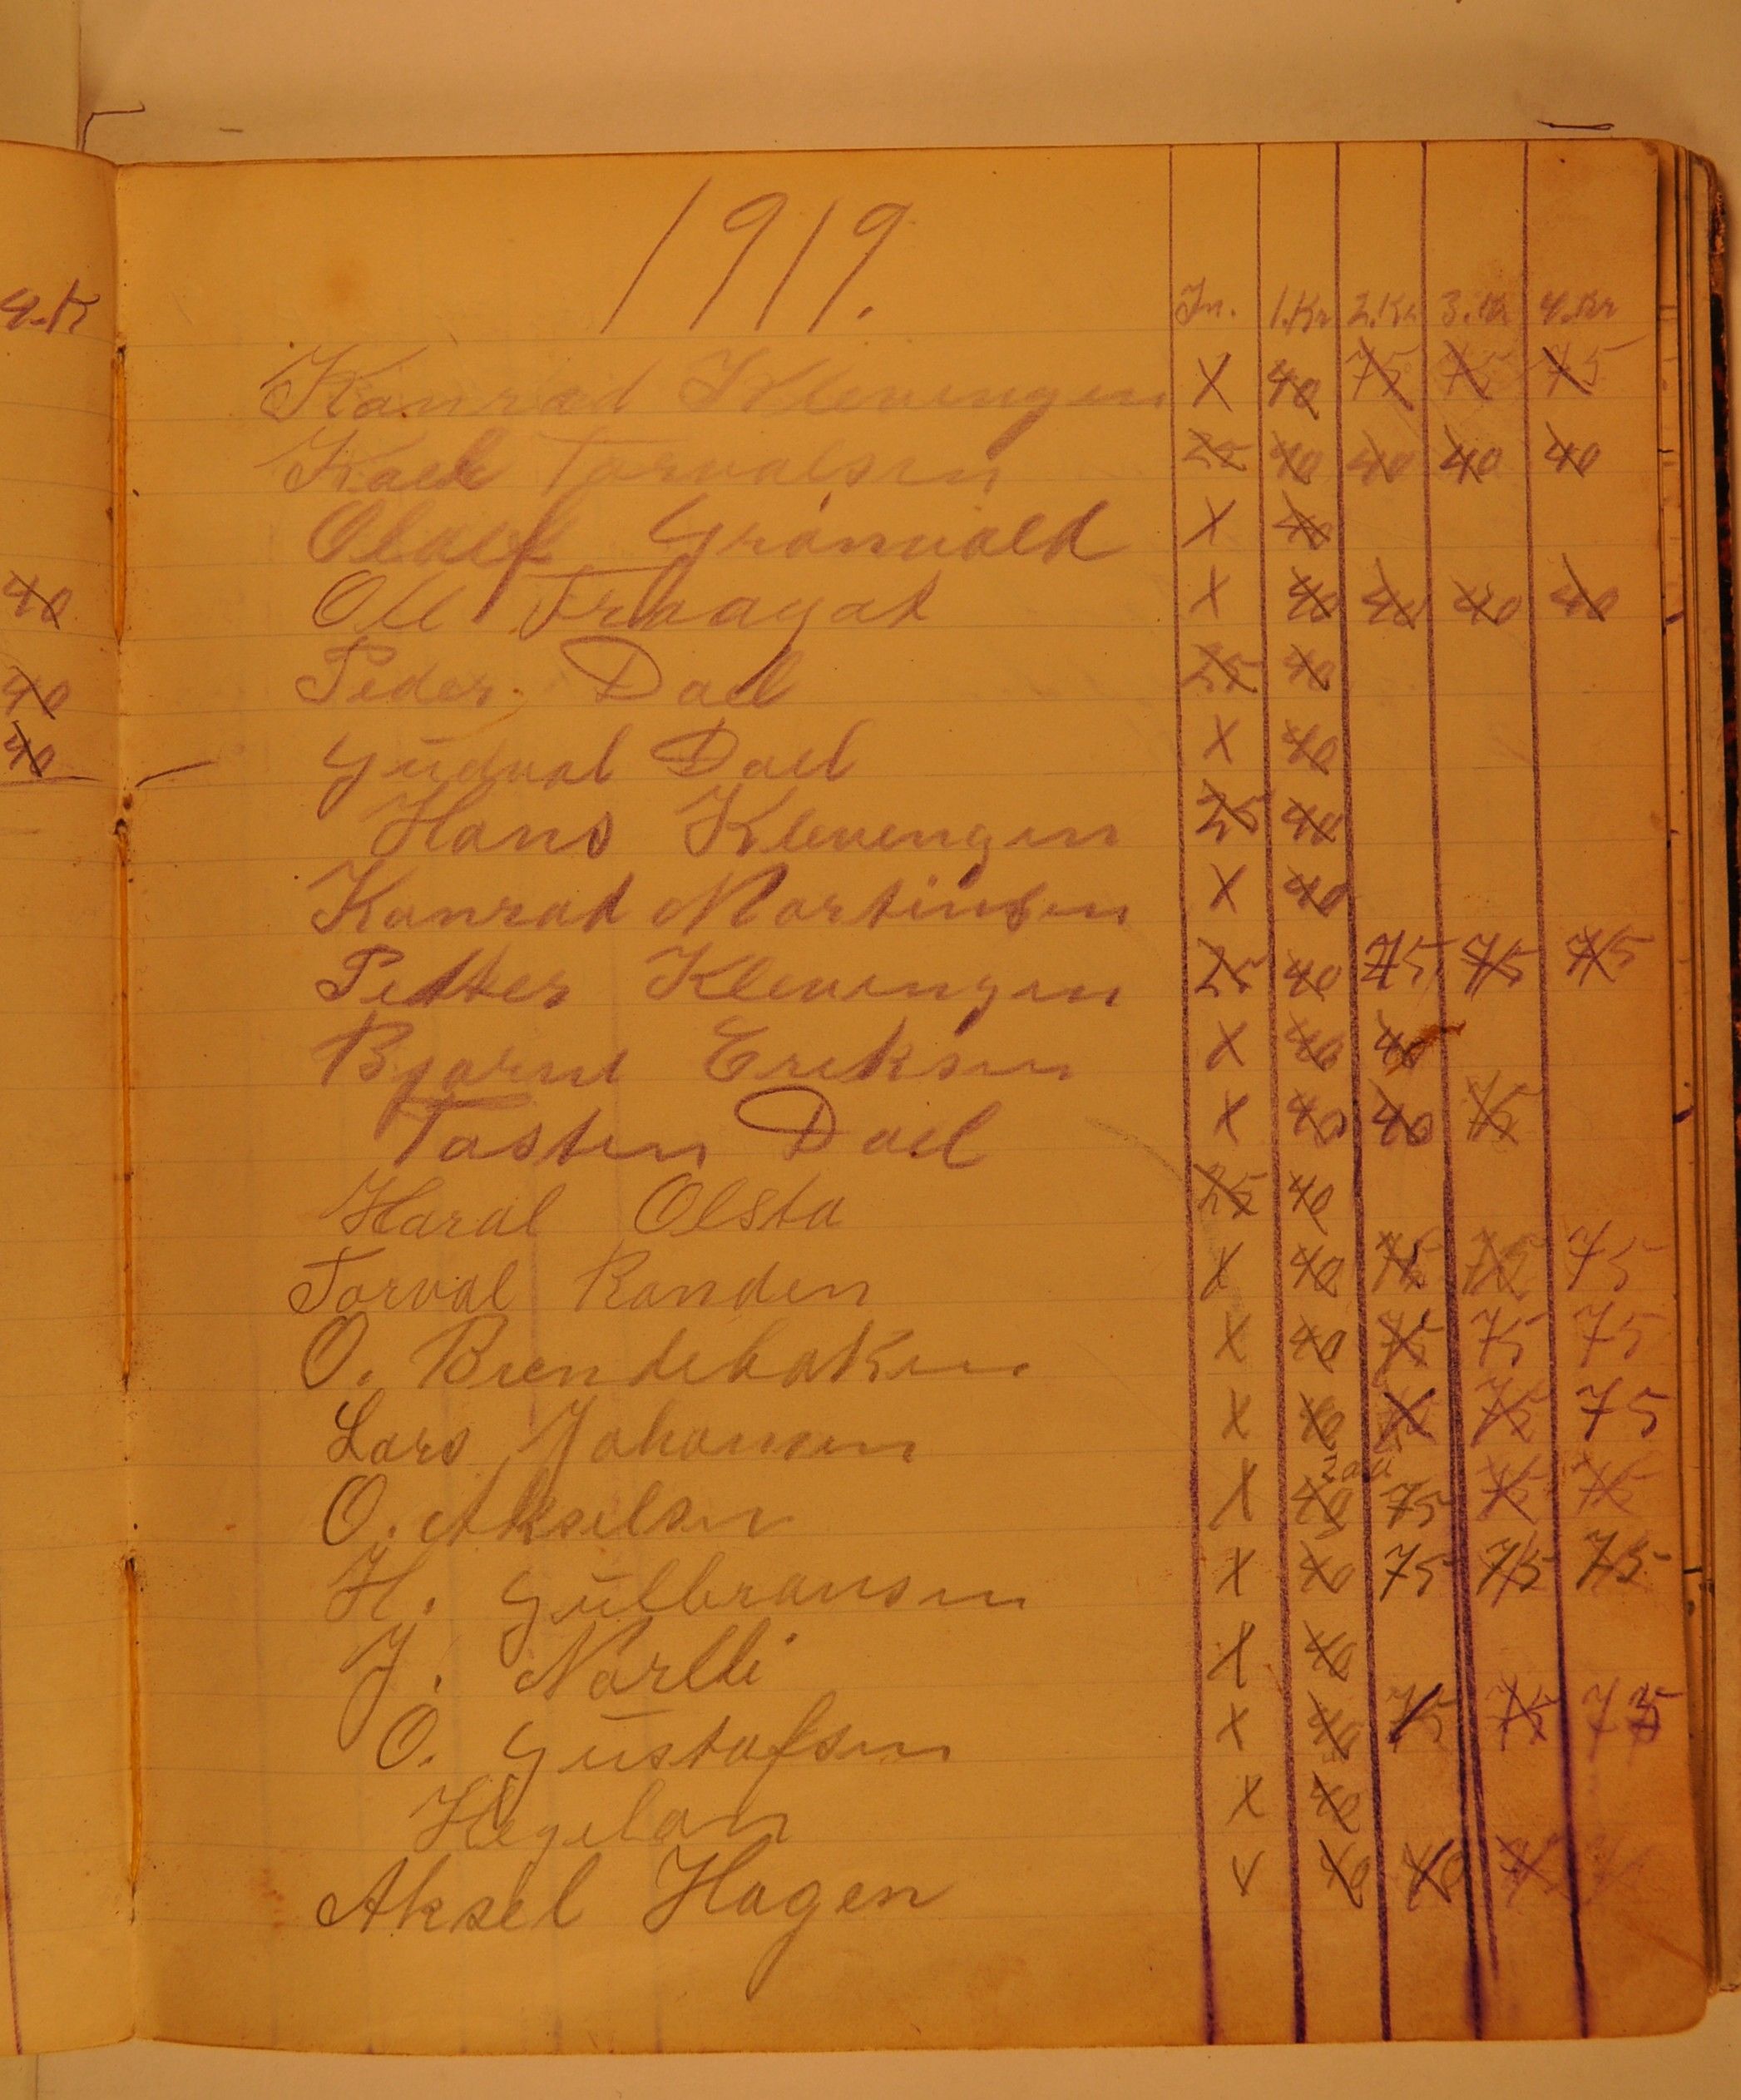 4.K
40
40
40
1919.
In. 1.Kr 2.Kr 3.Kr 4.Kr
Konrad Klevengen X 40 75 75 75
Torvalsen 25 40 40 40 40
Olaf Grönvold X 40
Ole X 40 40 40 40
Peder Dael 25 40
Gudval Dael X 40
Hans Klevengen 25 40
Konrad Martinsen X 40
Petter Klevengen 25 40 75 75 75
Bjarne Eriksen X 40 40
Tosten Dael X 40 40 75
Haral Olsta 25 40
Torval Randen X 40 75 75 75
O. Brendebakken X 40 75 75 75
Lars Johansen X 40 75 75 75
O. Akselsen X 40 75 75 75
H. Gülbransen X 40 75 75 75
J. Nörlli X 40
O. Güstafsen X 40 75 75 75
X 40
Aksel Hagen X 40 40